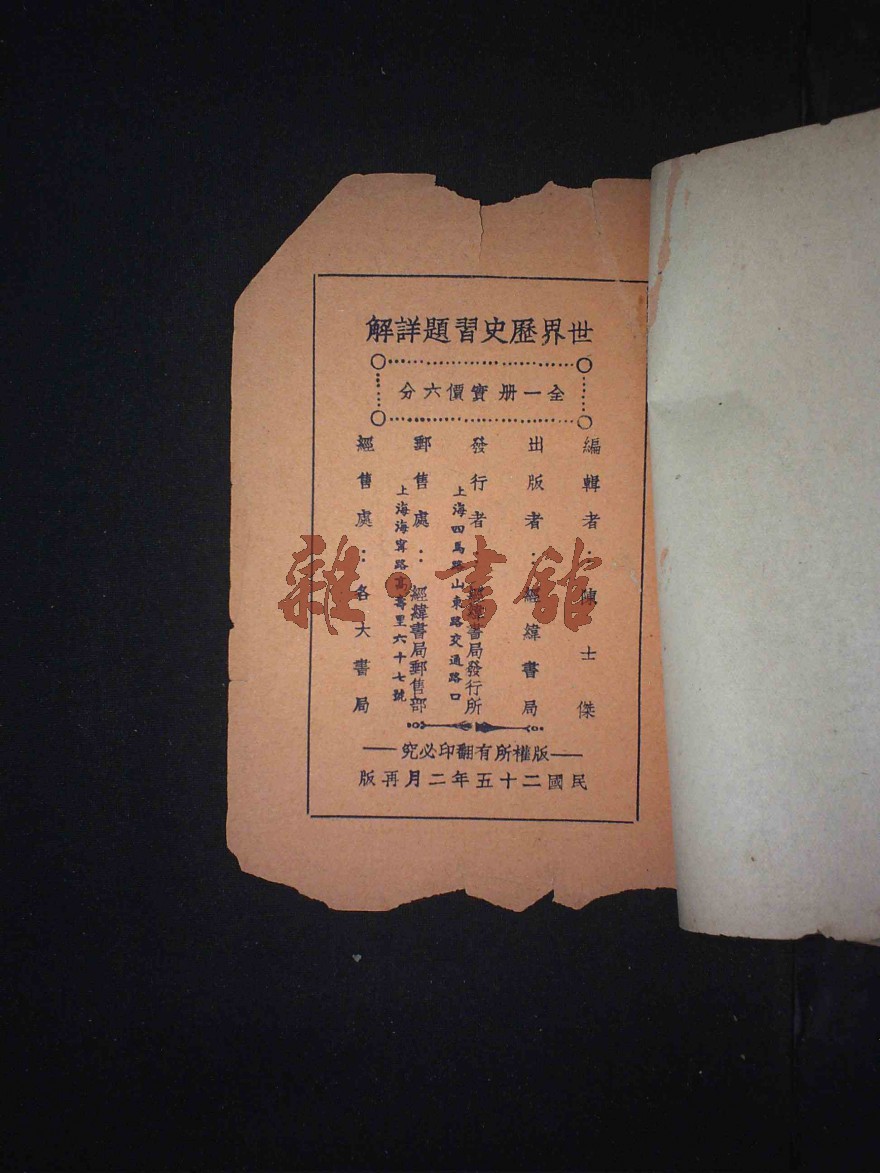 世界歷史習題詳解
全一册實價六分
編輯者：陳士傑
出版者：經緯書局
發行者：經緯書局發行所
上海四馬路山東路交通路口
郵售處：經緯書局郵售部
上海海甯路高壽里六十七號
經售處：各大書局
版權所有翻印必究
民國二十五年二月再版
雜·書館